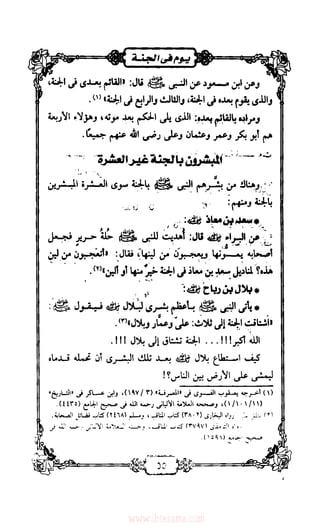 يوم فى الجنة
وعن ابن مسعود عن النبى ﷺ قال: «القائم بعدى فى الجنة،
والذى يقوم بعده فى الجنة، والثالث والرابع فى الجنة» (١).
ومراده بالقائم بعده: الذى يلى الحكم بعد موته، وهؤلاء الأربعة
هم أبو بكر وعمر وعثمان وعلى رضى الله عنهم جميعًا.
المبشرون بالجنة غير العشرة
وهناك من بشرهم النبى ﷺ بالجنة سوى العشرة المبشرين
بالجنة ومنهم:
* سعد بن معاذ:
عن البراء قال: أهديت للنبى ﷺ حلة حرير فجعل
أصحابه يمسونها ويعجبون من لينها، فقال: «أتعجبون من لين
هذه؟ لمناديل سعد بن معاذ فى الجنة خير منها أو ألين»(٢).
* بلال بن رباح:
* يأتى النبى ﷺ بأعظم بشرى لبلال فيقول ﷺ:
«اشتاقت الجنة إلى ثلاث: على وعمار وبلال»(٣).
الله أكبر!!!... الجنة تشتاق إلى بلال !!!
كيف استطاع بلال بعد تلك البشرى أن تحمله قدماه
ليمشى على الأرض بين الناس؟!
(١) أخرجه يعقوب الفسوى فى «المعرفة» (٣/ ١٩٧)، وابن عساكر فى «التاريخ»
(١١/ ١٠١/ ١)، وصححه العلامة الألبانى رحمه الله فى صحيح الجامع (٤٤٣٥).
رواه البخارى (٣٨٠٢) كتاب المناقب، ومسلم (٢٤٦٨) كتاب فضائل الصحابة.
صحيح الجامع (١٥٩٨)
٥٥
www.ibtesama.com